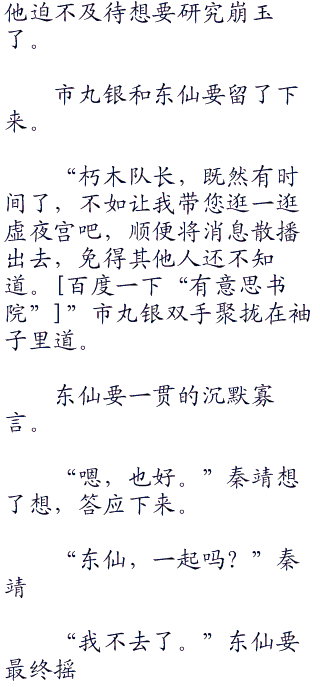 他迫不及待想要研究崩玉
了。
市丸银和东仙要留了下
来。
“朽木队长，既然有时
间了，不如让我带您逛一逛
虚夜宫吧，顺便将消息散播
出去，免得其他人还不知
道。[百度一下“有意思书
院”]”市丸银双手聚拢在袖
子里道。
东仙要一贯的沉默寡
言。
“嗯，也好。”秦靖想
了想，答应下来。
“东仙，一起吗？”秦
靖
“我不去了。”东仙要
最终摇